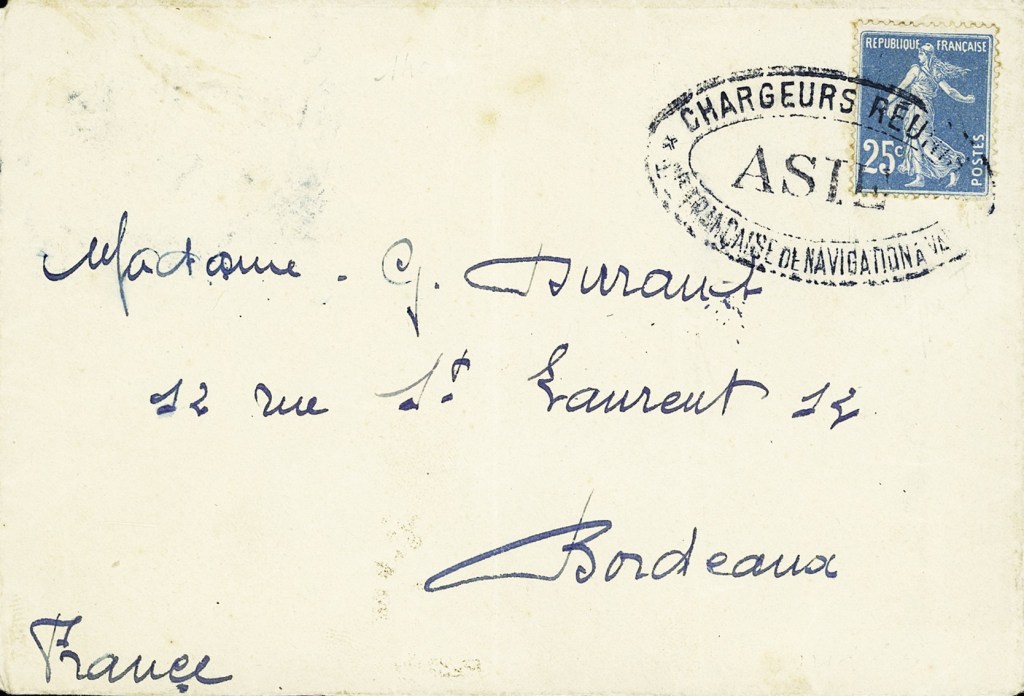 REPUBLIQUE FRANÇAISE
25c
POSTES
* CHARGEURS RÉUNIS
ASIE
FRANÇAISE DE NAVIGATION À
Madame. G. Durant
12 rue St Laurent 12
Bordeaux
France